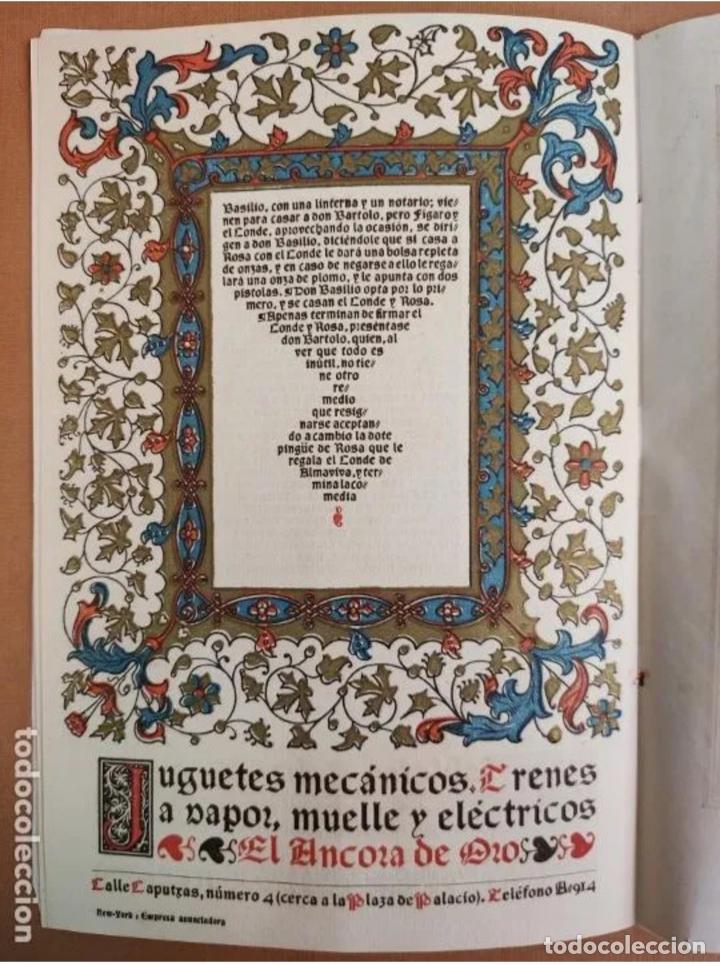 Basilio, con una linterna y un notario; vie-
nen para casar a don Bartolo, pero Fígaro y
el Conde, aprovechando la ocasión, se diri-
gen a don Basilio, diciéndole que si casa a
Rosa con el Conde le dará una bolsa repleta
de onzas, y en caso de negarse a ello le rega-
lará una onza de plomo, y le apunta con dos
pistolas. Don Basilio opta por lo pri-
mero, y se casan el Conde y Rosa.
Apenas terminan de firmar el
Conde y Rosa, preséntase
don Bartolo, quien, al
ver que todo es
inútil, no tie-
ne otro
re-
medio
que resig-
narse aceptan-
do a cambio la dote
pingüe de Rosa que le
regala el Conde de
Almaviva, y ter-
mina la co-
media
Juguetes mecánicos. Trenes
a vapor, muelle y eléctricos
El Ancora de Oro
Calle Caputxas, número 4 (cerca a la Plaza de Palacio). Teléfono A-914
New-York : Empresa anunciadora
todocoleccion
todocoleccion